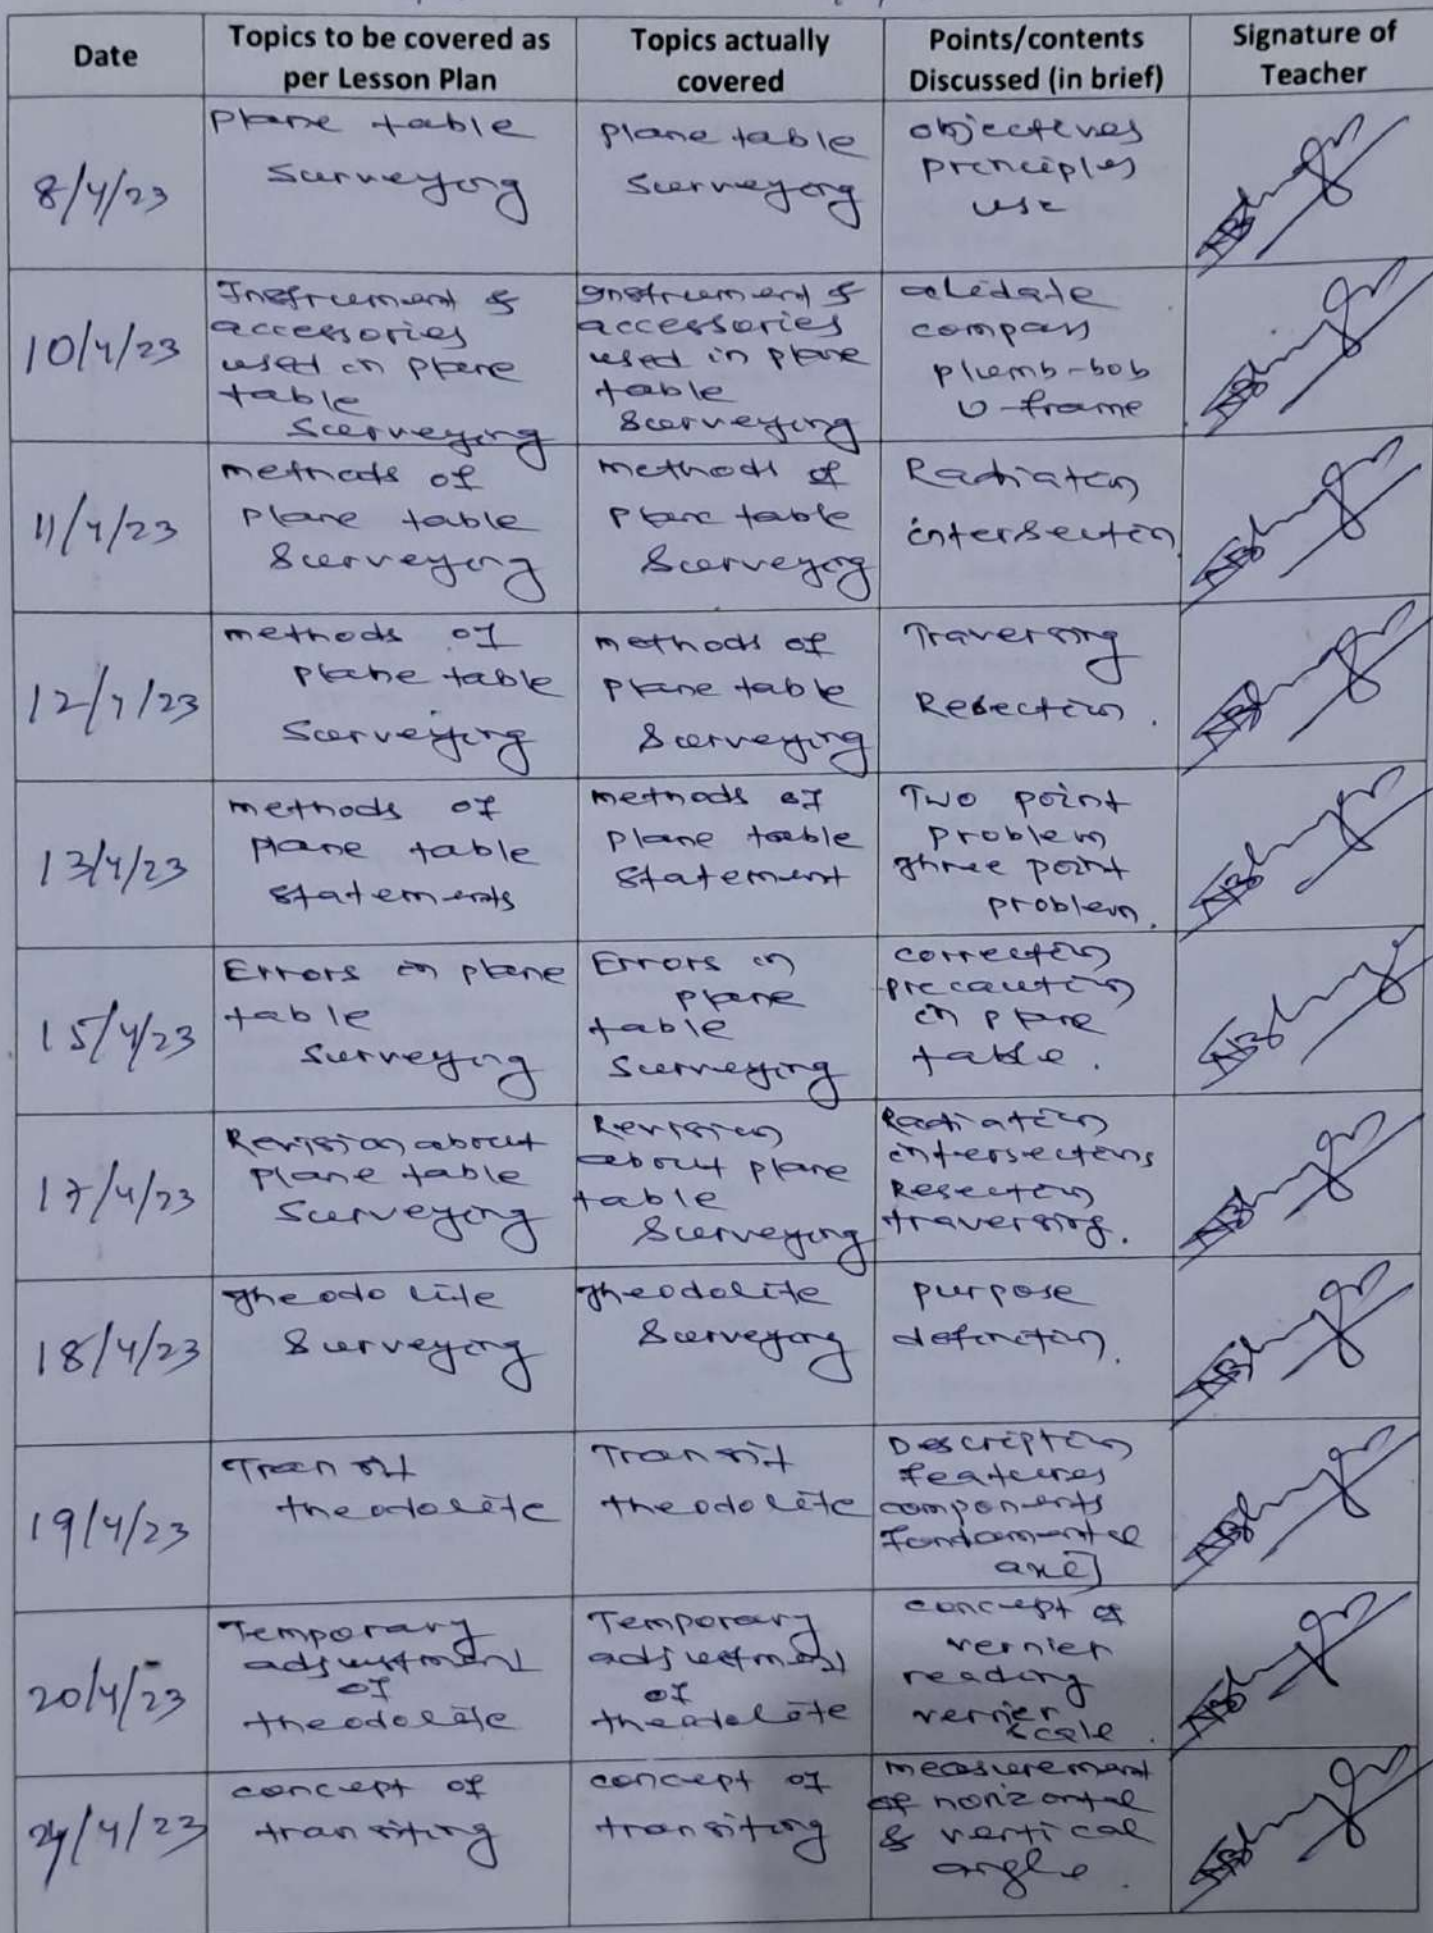 Date
Topics to be covered as
per Lesson Plan
Topics actually
covered
Points/contents
Discussed (in brief)
Signature of
Teacher
8/4/23
plane table
Surveying
plane table
Surveying
objectives
principles
use
10/4/23
Instrument &
accessories
used in plane
table
Surveying
Instrument &
accessories
used in plane
table
Surveying
alidate
compass
plumb-bob
U-frame
11/4/23
methods of
plane table
Surveying
methods of
plane table
Surveying
Radiation
intersection
12/4/23
methods of
plane table
Surveying
methods of
plane table
Surveying
Traversing
Resection.
13/4/23
methods of
plane table
statements
methods of
plane table
statement
Two point
problem
Three point
problem.
15/4/23
Errors in plane
table
surveying
Errors in
plane
table
surveying
correction
precaution
in plane
table.
17/4/23
Revision about
plane table
Surveying
Revision
about plane
table
Surveying
Radiation
intersections
Resection
traversing.
18/4/23
Theodolite
Surveying
Theodolite
Surveying
purpose
definition.
19/4/23
Transit
theodolite
Transit
theodolite
Description
features
components
Fondamental
axis
20/4/23
Temporary
adjustment
of
theodolite
Temporary
adjustment
of
theodolite
concept of
vernier
reading
vernier
scale.
/4/23
concept of
transiting
concept of
transiting
measurement
of horizontal
& vertical
angle.